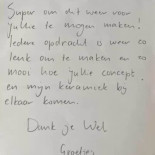 Super om dit weer voor
jullie te mogen maken!
Iedere opdracht is weer zo
leuk om te maken en zo
mooi hoe jullie concept
en mijn keramiek bij
elkaar komen.
Dank je Wel
Groetjes